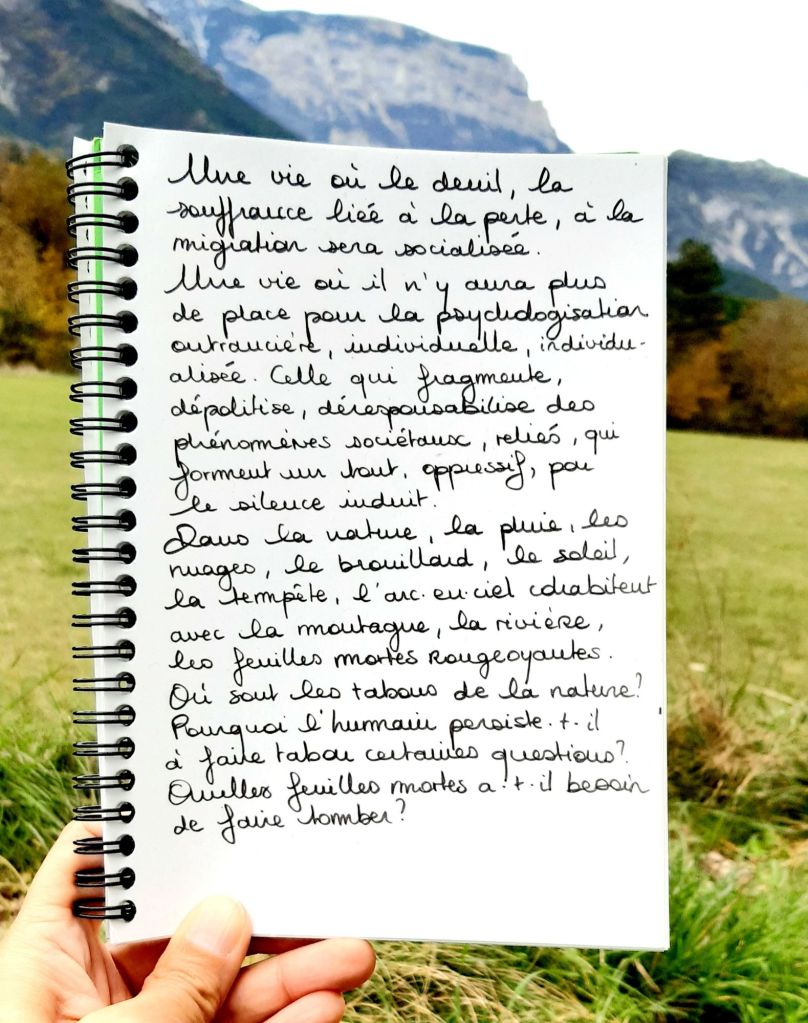 Une vie où le deuil, la
souffrance liée à la perte, à la
migration sera socialisée.
Une vie où il n'y aura plus
de place pour la psychologisation
outrancière, individuelle, individu-
alisée. Celle qui fragmente,
dépolitise, déresponsabilise des
phénomènes sociétaux, reliés, qui
forment un tout, oppressif, par
le silence induit.
Dans la nature, la pluie, les
nuages, le brouillard, le soleil,
la tempête, l'arc-en-ciel cohabitent
avec la montagne, la rivière,
les feuilles mortes rougeoyantes.
Où sont les tabous de la nature?
Pourquoi l'humain persiste-t-il
à faire tabou certaines questions?
Quelles feuilles mortes a-t-il besoin
de faire tomber?